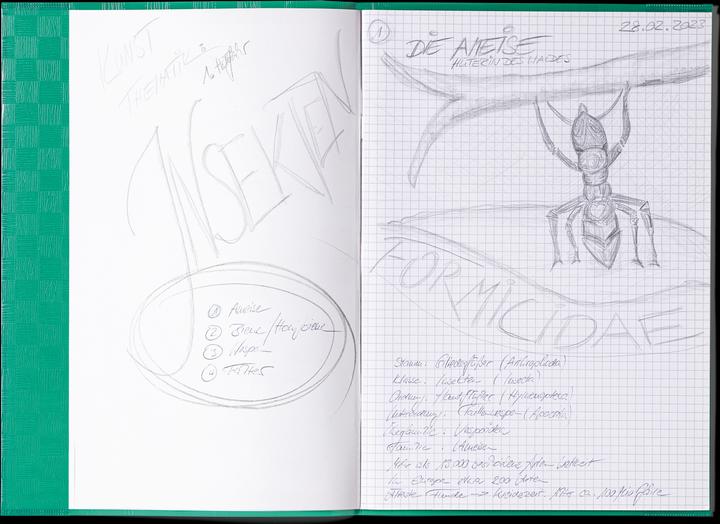 KUNST
THEMATIK:
1. Halbjahr
INSEKTEN
1 Ameise
2 Biene/Honigbiene
3 Wespe
4
1
28.02.2023
DIE AMEISE
HÜTERIN DES WALDES
FORMICIDAE
Stamm: Gliederfüßer (Arthropoda)
Klasse: Insekten (Insecta)
Ordnung: Hautflügler (Hymenoptera)
Unterordnung: Taillenwespen (Apocrita)
Überfamilie: Vespoidea
Familie: Ameisen
Mehr als 13.000 beschriebene Arten weltweit
In Europa etwa 200 Arten
Älteste Funde → Kreidezeit. Mio ca. 100 Mio Jahre